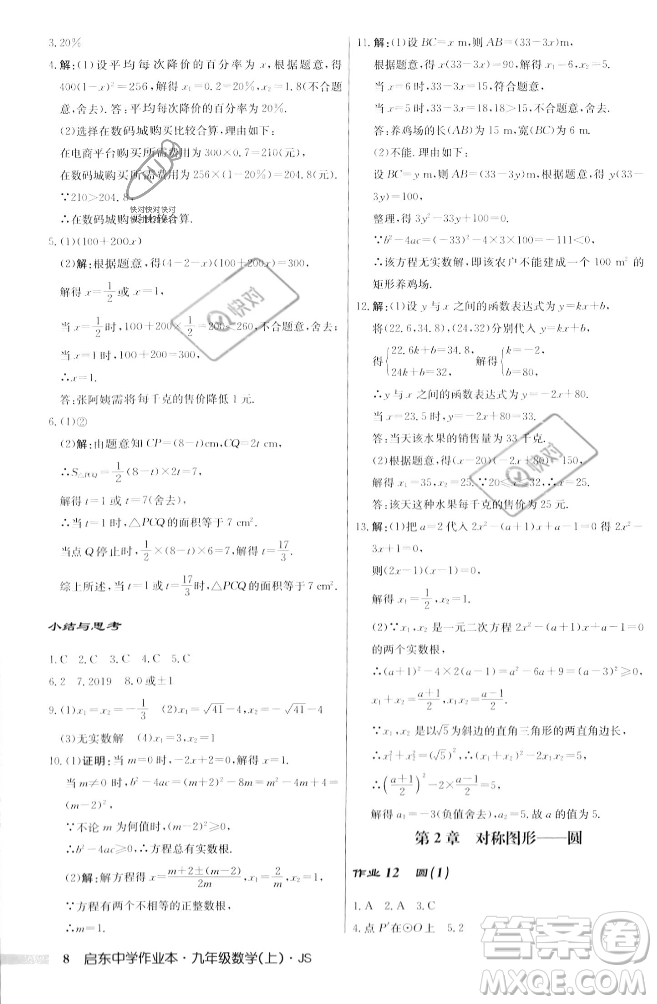 3. 20%
4. 解:(1)设平均每次降价的百分率为 x,根据题意,得
400(1-x)²=256,解得 x₁=0.2=20%,x₂=1.8(不合题
意,舍去). 答:平均每次降价的百分率为 20%.
(2)选择在数码城购买比较合算,理由如下:
在电商平台购买所需费用为 300×0.7=210(元),
在数码城购买所需费用为 256×(1-20%)=204.8(元).
∵210>204.8,
∴在数码城购买比较合算.
5. (1)(100+200x)
(2)解:根据题意,得(4-2-x)(100+200x)=300.
解得 x=1/2 或 x=1.
当 x=1/2 时,100+200×1/2=200<260,不合题意,舍去;
当 x=1 时,100+200=300>260,符合题意.
∴x=1.
答:张阿姨需将每千克的售价降低 1 元.
6. (1)②
(2)解:由题意知 CP=(8-t)cm,CQ=2t cm,
∴S△PCQ=1/2(8-t)×2t=
解得
∴当 t= 时,△PCQ 的面积为
当点 Q 停止时,1/2×(8-t)×6=7,解得 t=17/3.
综上所述,当 t= 或 t=17/3 时,△PCQ 的面积为 7 cm².
小结与思考
1. C 2. C 3. C 4. C 5. C
6. 2 7. 2019 8. 0 或±1
9. (1)x₁=x₂=-1/3 (2)x₁=√41-4,x₂=-√41-4
(3)无实数解 (4)x₁=-2,x₂=1
10. (1)证明:当 m=0 时,方程的解为 x=1.
当 m≠0 时,b²-4ac=(m+2)²-4m×2=m²-4m+4=
(m-2)².
∵不论 m 为何值时,(m-2)²≥0,
∴方程总有实数根.
(2)解:解方程得 x=(m+2±(m-2))/2m,∴x₁=2/m,x₂=1.
∵方程有两个不相等的正整数根,
∴m=1.
11. 解:(1)设 BC=x m,则 AC=(33-3x)m,根据题意,得
x(33-3x)=90,解得 x₁=6,x₂=5.
当 x=6 时,33-3x=15,符合题意;
当 x=5 时,33-3x=18,18>15,不合题意,舍去.
答:养鸡场的长为 15 m,宽为 6 m.
(2)不能. 理由如下:
设 BC=y m,则 AC=(33-3y)m,根据题意,得
y(33-3y)=100,
整理,得 3y²-33y+100=0.
∵b²-4ac=(-33)²-4×3×100=-111<0,
∴该方程无实数解,即该农户不能建成一个 100 m² 的
矩形养鸡场.
12. 解:(1)设 y 与 x 之间的函数表达式为 y=kx+b.
将(22.6,34.8),(24,32)分别代入
得{22.6k+b=34.8, 24k+b=32. 解得{k=-2, b=80.
∴y 与 x 之间的函数表达式为 y=-2x+80.
当 x=23.5 时,y=-2x+80=33.
答:当天该水果的销售量为 33 千克.
(2)根据题意,得(x-20)(-2x+80)=150.
解得 x₁=35,x₂=25.
∵20≤x≤32,∴x=25.
答:该天这种水果每千克的售价为 25 元.
13. 解:(1)把 a=2 代入 2x²-(a+1)x+a-1=0,得 2x²-
3x+1=0,
则(2x-1)(x-1)=0,
解得 x₁=1/2,x₂=1.
(2)∵x₁,x₂ 是一元二次方程 2x²-(a+1)x+a-1=0
的两个实数根,
∴(a+1)²-4×2(a-1)=(a-3)²≥0,
x₁+x₂=(a+1)/2,x₁x₂=(a-1)/2.
∵x₁,x₂ 是以√5为斜边的直角三角形的两直角边,
∴x₁²+x₂²=5,∴(x₁+x₂)²-2x₁x₂=5,
∴((a+1)/2)²-2×(a-1)/2=5,
解得 a₁=-3(负值舍去),a₂=5. 故 a 的值为 5.
第 2 章 对称图形——圆
作业 12 圆(1)
1. A 2. A 3. C
4. 点 P′在⊙O 外 5. 2
8 启东中学作业本·九年级数学(上)·JS